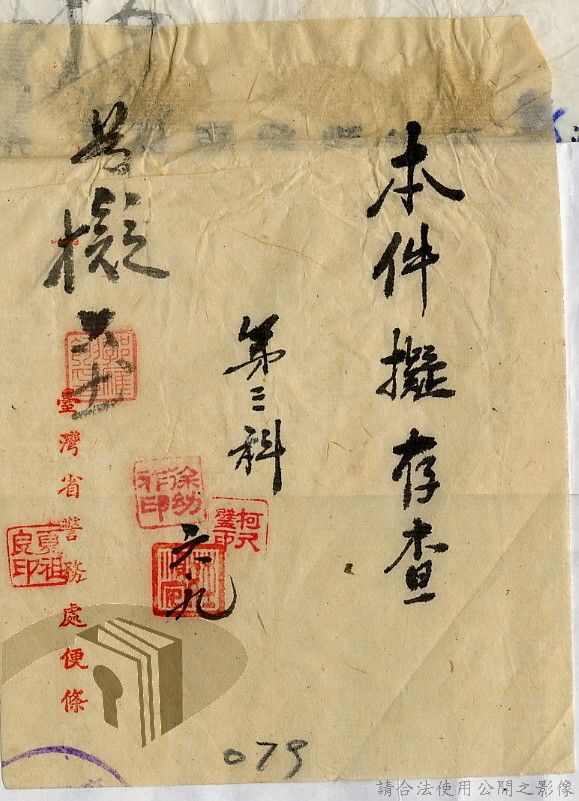 本件擬存查
第三科
六九
擬
臺灣省警務處便條
夏祖良印
079
請合法使用公開之影像